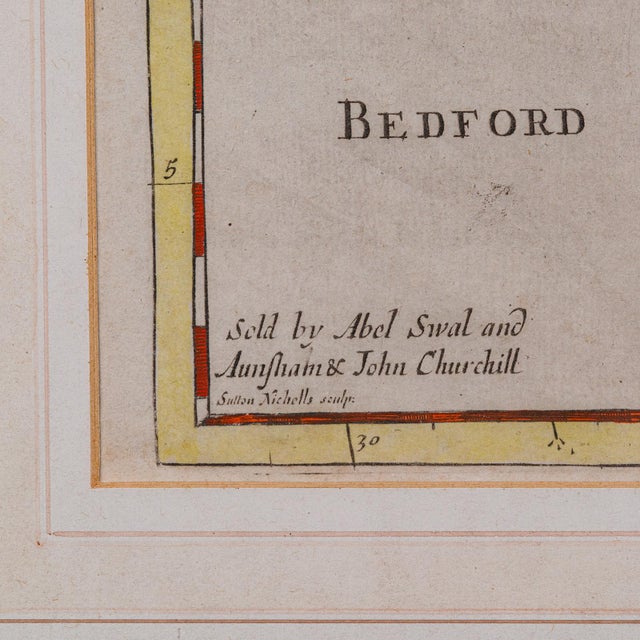 BEDFORD
5
Sold by Abel Swal and
Aunsham & John Churchill
Sutton Nicholls sculp:
30